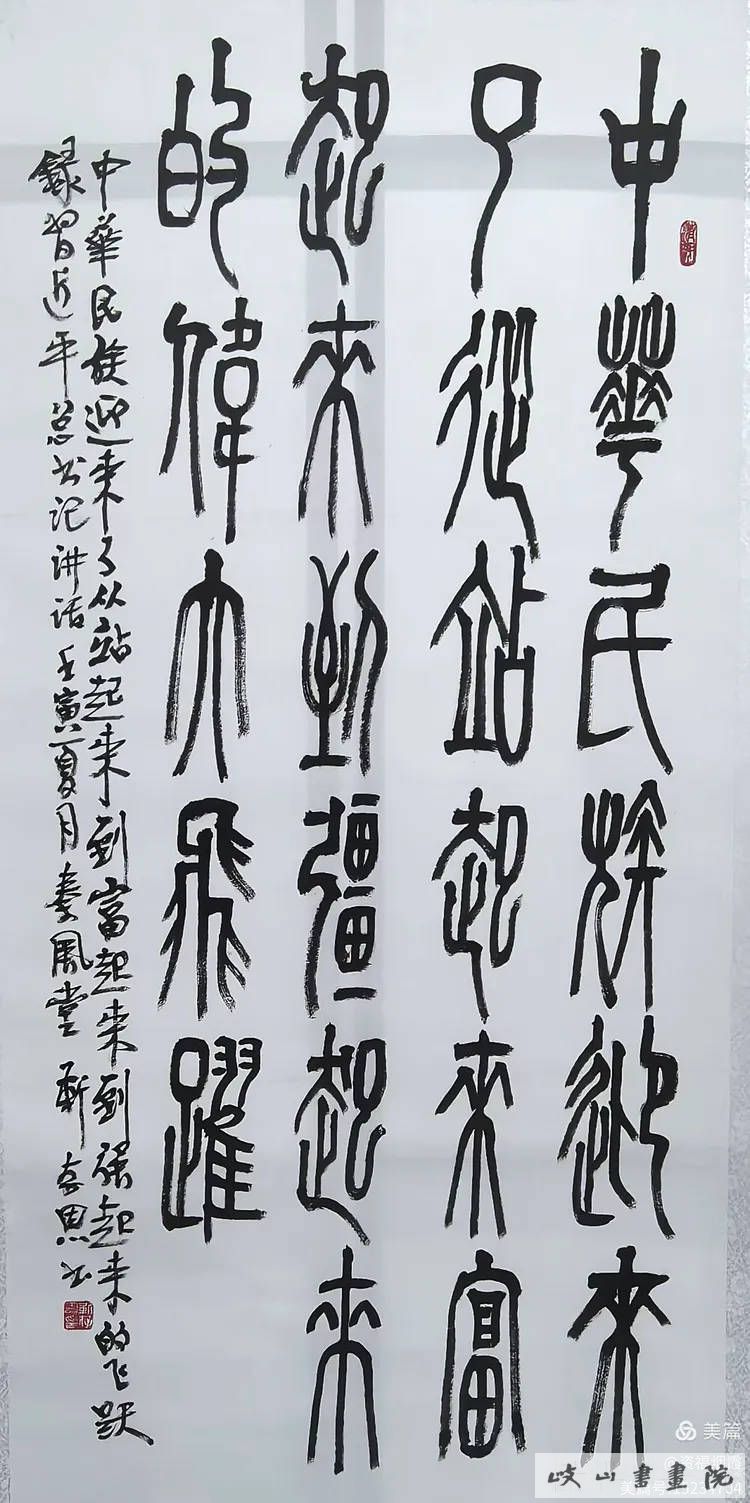 中華民族迎來
了從站起來富
起來到彊起來
的偉大飛躍
中華民族迎来了从站起来到富起来到强起来的飞跃
録習近平总书记讲话壬寅夏月秦風堂靳恩书
美篇
美篇号
岐山書畫院